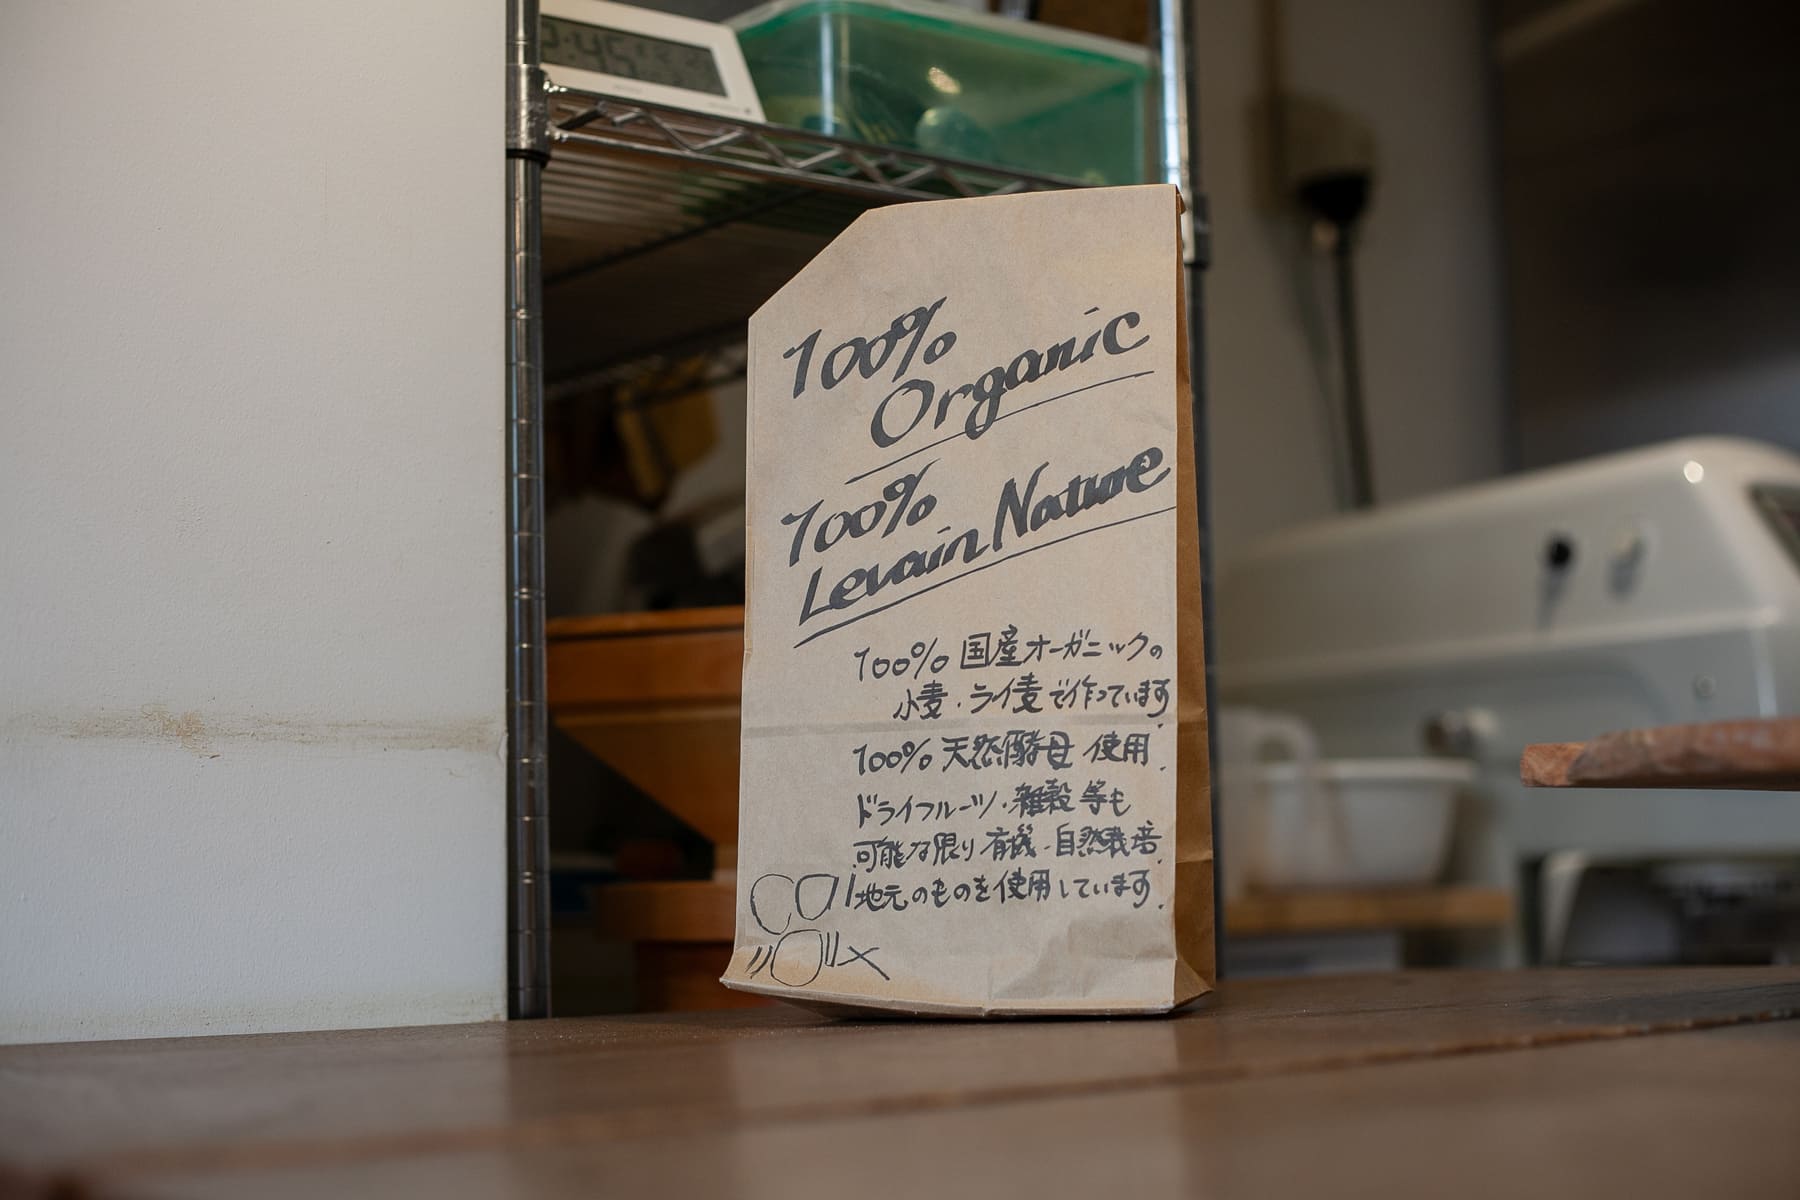 100%
Organic
100%
Levain Nature
100% 国産オーガニックの
小麦・ライ麦で作っています
100% 天然酵母 使用.
ドライフルーツ・雑穀 等も
可能な限り 有機・自然栽培.
地元のものを使用しています.